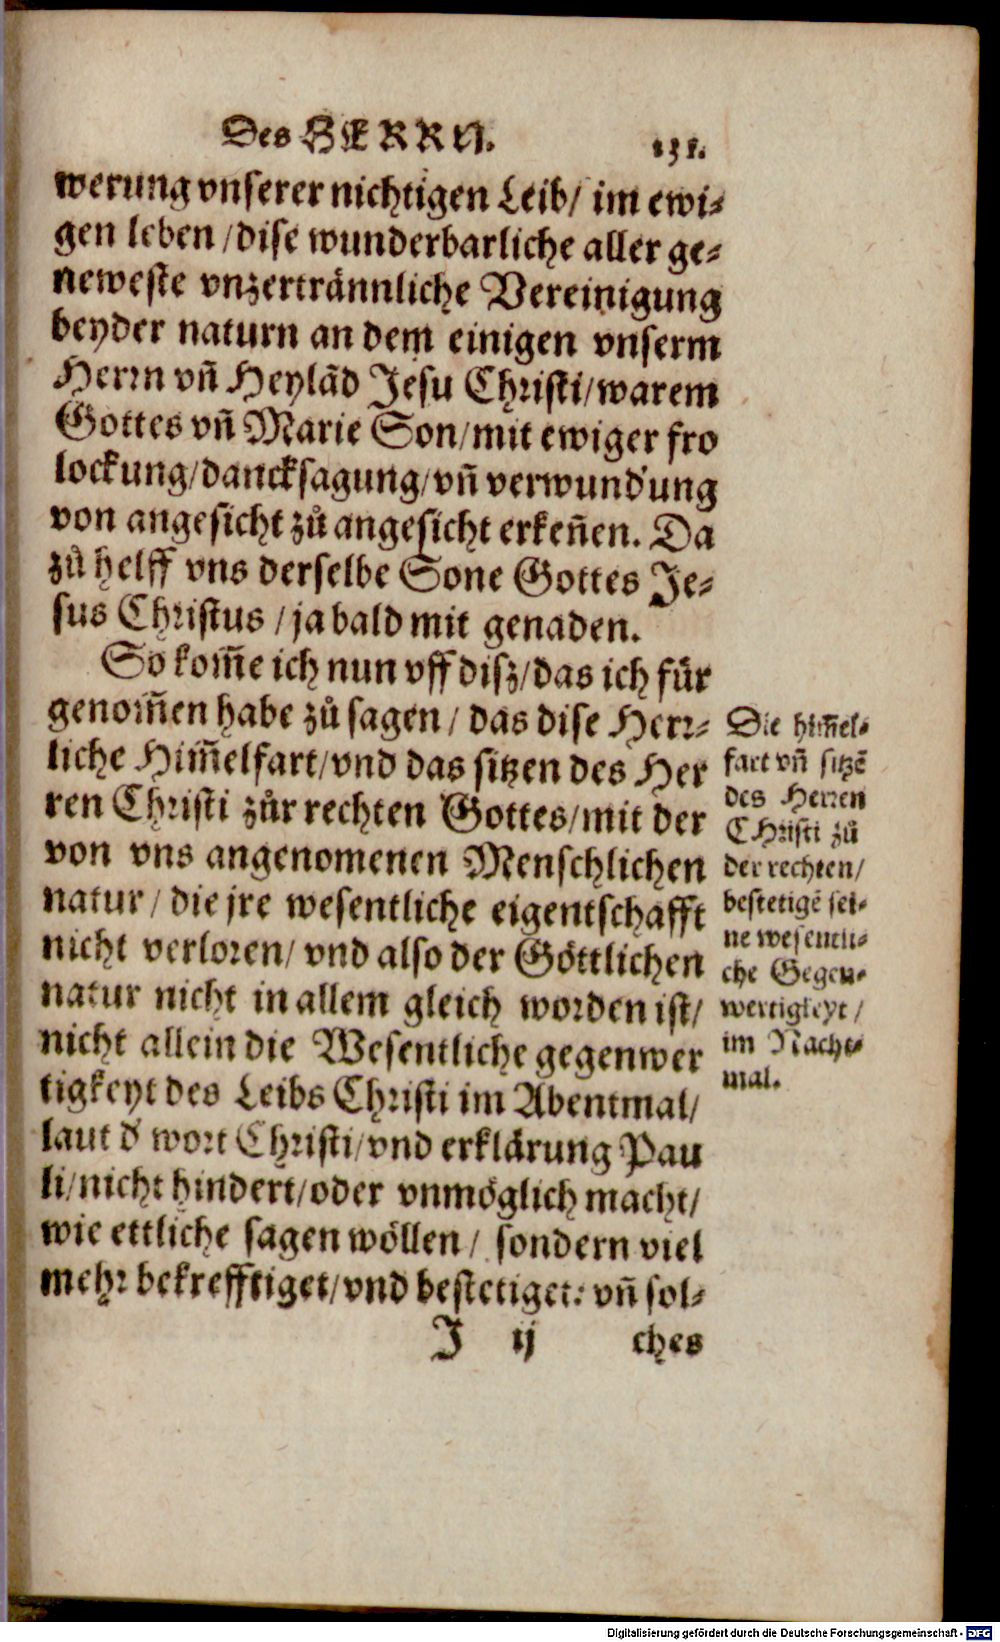 Des HERRN. 131.
werung vnserer nichtigen Leib/ im ewi⸗
gen leben /dise wunderbarliche aller ge⸗
neweste vnzertrännliche Vereinigung
beyder naturn an dem einigen vnserm
Herrn vñ Heylãd Jesu Christi/warem
Gottes vñ Marie Son/mit ewiger fro
lockung/dancksagung/vñ verwund'ung
von angesicht zů angesicht erkeñen. Da
zů helff vns derselbe Sone Gottes Je⸗
sus Christus /ja bald mit genaden.
So kom̃e ich nun vff disz/das ich für
genom̃en habe zů sagen / das dise Herr⸗
liche Him̃elfart/vnd das sitzen des Her
ren Christi zůr rechten Gottes/mit der
von vns angenomenen Menschlichen
natur / die jre wesentliche eigentschafft
nicht verloren/ vnd also der Göttlichen
natur nicht in allem gleich worden ist/
nicht allein die Wesentliche gegenwer
tigkeyt des Leibs Christi im Abentmal/
laut d' wort Christi/vnd erklärung Pau
li/nicht hindert/oder vnmöglich macht/
wie ettliche sagen wöllen / sondern viel
mehr bekrefftiget/vnd bestetiget: vñ sol⸗
J ij ches
Die him̃el⸗
fart vñ sitzẽ
des Herren
CHristi zů
der rechten/
bestetigẽ sei⸗
ne wesentli⸗
che Gegen⸗
wertigkeyt /
im Nacht⸗
mal.
Digitalisierung gefördert durch die Deutsche Forschungsgemeinschaft - DFG